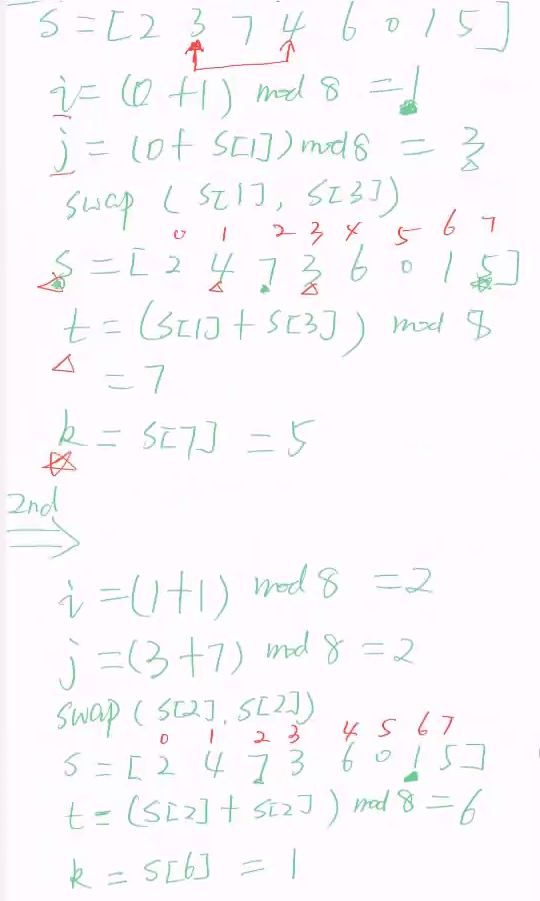 S = [ 2 3 7 4 6 0 1 5 ]
i = (0 + 1) mod 8 = 1
j = (0 + S[1]) mod 8 = 3
swap ( S[1], S[3])
0 1 2 3 4 5 6 7
S = [ 2 4 7 3 6 0 1 5 ]
t = (S[1] + S[3]) mod 8
= 7
k = S[7] = 5
2nd
i = (1+1) mod 8 = 2
j = (3+7) mod 8 = 2
swap ( S[2], S[2])
0 1 2 3 4 5 6 7
S = [ 2 4 7 3 6 0 1 5 ]
t = (S[2] + S[2]) mod 8 = 6
k = S[6] = 1